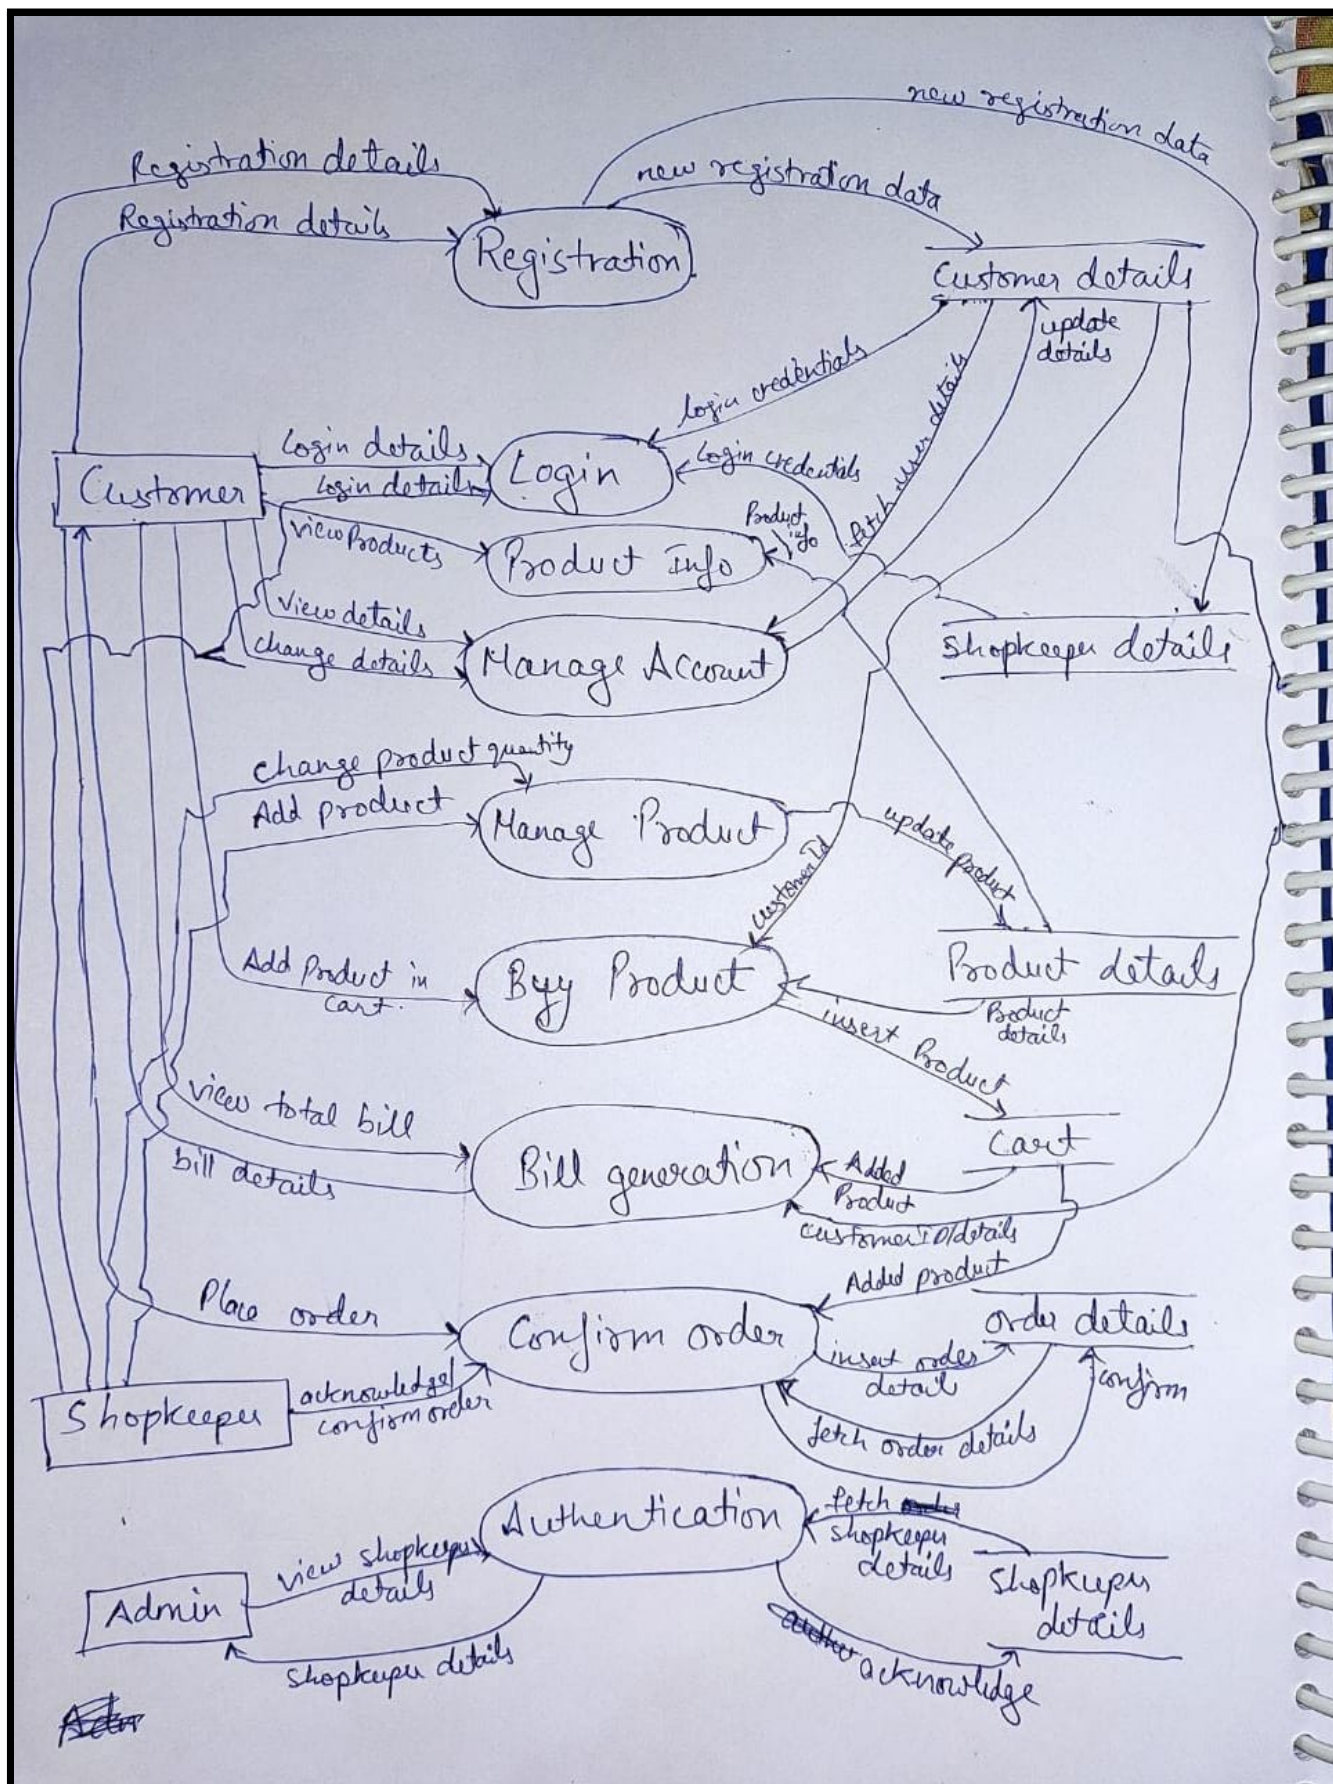 new registration data
Registration details
new registration data
Registration details
Registration
Customer details
update
details
login credentials
Login details
Login
Login credentials
fetch user details
Customer
Login details
View Products
Product
info
Product Info
View details
Shopkeeper details
change details
Manage Account
change product quantity
Add product
Manage Product
update product
Customer Id
Add Product in
cart.
Byy Product
Product details
Product
details
insert Product
view total bill
Cart
bill details
Bill generation
Added
Product
Customer ID/details
Added product
Place order
Confirm order
order details
insert order
detail
confirm
acknowledge/
confirm order
Shopkeeper
fetch order details
Authentication
fetch
shopkeeper
details
view shopkeeper
details
Shopkeeper
details
Admin
Shopkeeper details
acknowledge